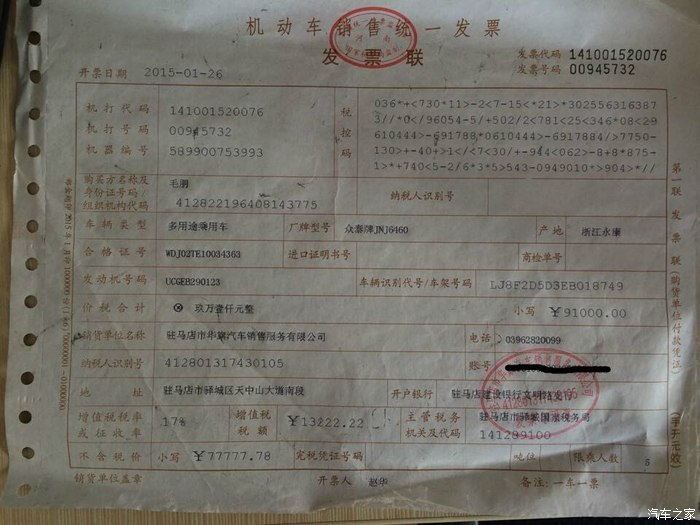 机动车销售统一发票
发票联
发票代码 141001520076
发票号码 00945732
开票日期 2015-01-26
机打代码 141001520076
机打号码 00945732
机器编号 589900753993
税控码
036*+<730*11>-2<7-15<*21>*302556316387
3//*0</96054-5/+502/2<781<25<346*08<29
610444>-691788*0610444>-6917884/>7750-
130>+-40+>1</<7<30/+-944<062>-8+8*875-
1>*+740<5-2/6*3*5>543-0949010*>904>*//
购买方名称及身份证号码/组织机构代码 毛朋
412822196408143775
纳税人识别号
车辆类型 多用途乘用车 厂牌型号 众泰牌JNJ6460 产地 浙江永康
合格证号 WDJ02TE10034363 进口证明书号 商检单号
发动机号码 UCGEB290123 车辆识别代号/车架号码 LJ8F2D5D3EB018749
价税合计 ⊗ 玖万壹仟元整 小写 ¥91000.00
销货单位名称 驻马店市华骏汽车销售服务有限公司 电话 03962820099
纳税人识别号 412801317430105 账号
地址 驻马店市驿城区天中山大道南段 开户银行 驻马店建设银行文明路支行
增值税税率或征收率 17% 增值税税额 ¥13222.22 主管税务机关及代码 驻马店市驿城国家税务局
141299100
不含税价 小写 ¥77777.78 完税凭证号码 吨位 限乘人数 5
销货单位盖章 开票人 赵华 备注:一车一票
第一联 发票联(购货单位付款凭证)
(手开无效)
汽车之家